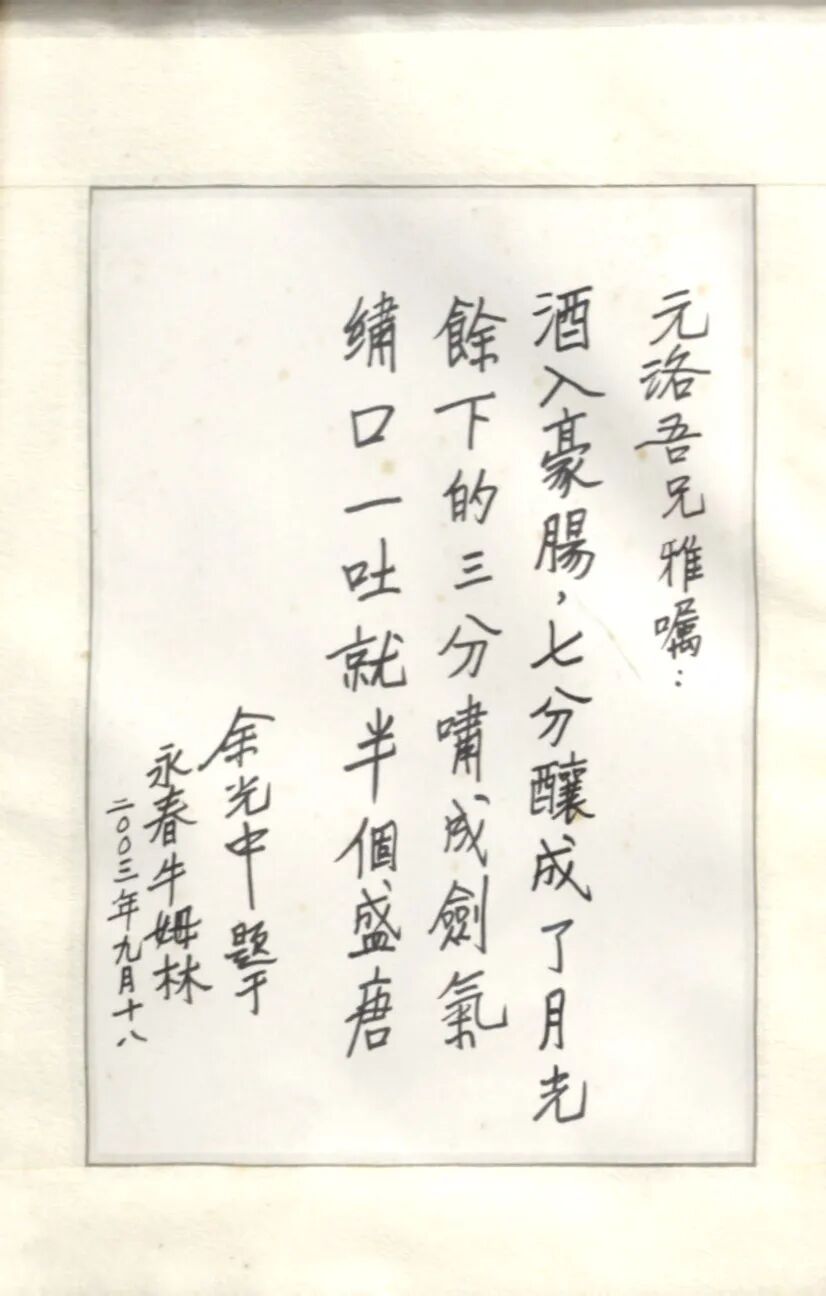 元洛吾兄雅嘱：
酒入豪腸，七分釀成了月光
餘下的三分嘯成劍氣
繡口一吐就半個盛唐
余光中题于
永春牛姆林
二〇〇三年九月十八